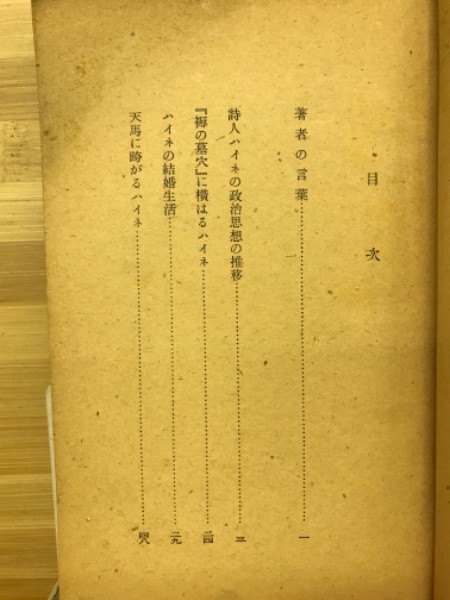 目次
著者の言葉……一
詩人ハイネの政治思想の推移……三
『褥の墓穴』に横はるハイネ……二四
ハイネの結婚生活……二九
天馬に跨がるハイネ……四八